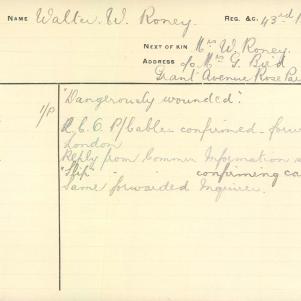 NAME Walter. W. Roney. REG. &C. 43rd
NEXT OF KIN Mrs W. Roney.
ADDRESS c/o Mrs G. Byrd
Grant Avenue Rose Par
1/P "Dangerously wounded".
P/Cable confirmed - forw
London
Reply from Commn Information
confirming ca
Same forwarded Inquirer.